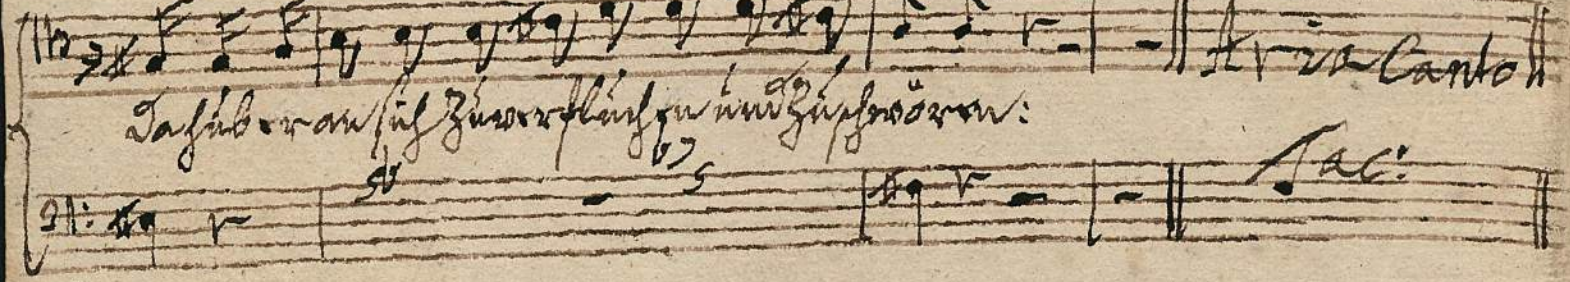 Aria Canto
Da hub er an sich zu verfluchen und zu schwören:
Tac: